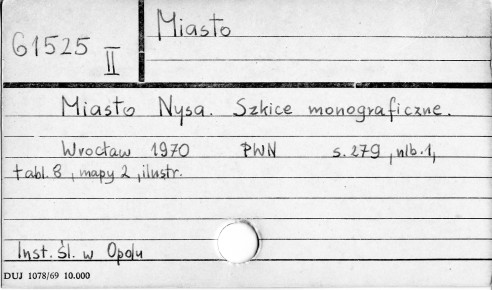 61525
II
Miasto
Miasto Nysa. Szkice monograficzne.
Wrocław 1970 PWN s. 279, nlb. 1,
tabl. 8, mapy 2, ilustr.
Inst. śl. w Opolu
DUJ 1078/69 10.000